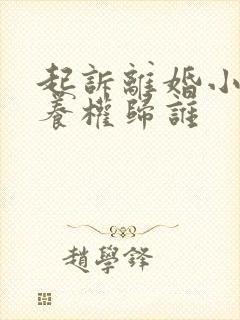 起訴離婚小
養權歸誰
趙學鋒